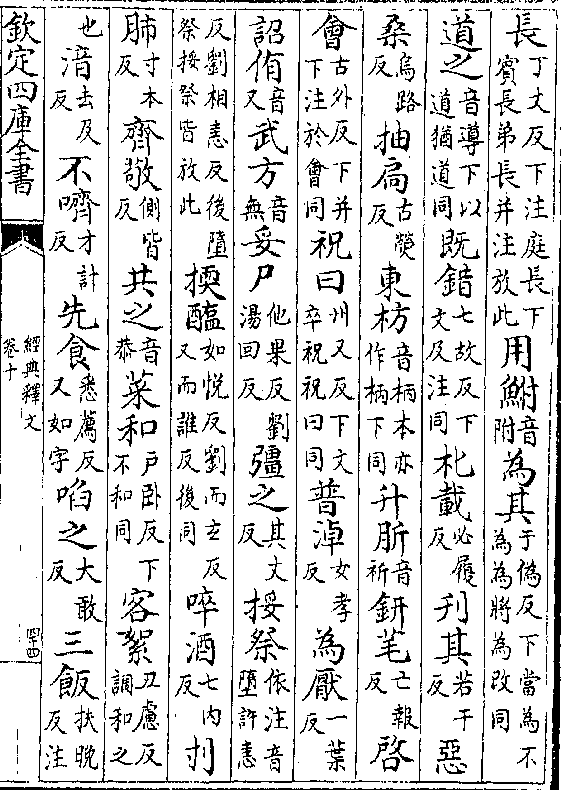 長丁丈反下注庭長下賓長弟長并注放此用鮒音附為其于偽反下當為不為為將為改同
道之音導下以道道猶道同既錯七故反下文及注同朼載必履反刌其若干反惡
桑烏路反抽扃古熒反東枋音柄本亦作柄下同升肵音祈鈃芼亡報反啓
會古外反下并下注於會同祝曰州又反下文卒祝祝曰同普淖女孝反為厭一葉反
詔侑音又武方音無妥尸他果反劉湯回反彊之其丈反挼祭依注音墮許恚
反劉相恚反後墮祭挼祭皆放此擩醢如悅反劉而玄反又而誰反後同啐酒七內反刌
肺寸本反齊敬側皆反共之音恭菜和户卧反下不和同客絮丑慮反調和之
也湆去及反不嚌才計反先食悉薦反又如字啗之大敢反三飯扶晚反注
欽定四庫全書
經典釋文
卷十
四十四